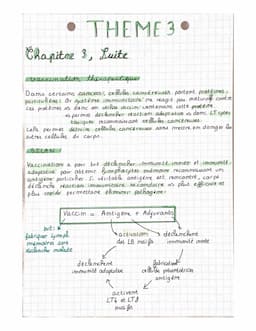 THEME 3
Chapitre 3, Suite
vaccination thérapeutique
Dans certains cancers, cellules cancéreuses portent protéines
particulières. Or système immunitaire ne réagit pas contre
ces protéines → donc on utilise vaccin contenant cette protéine
→ permet déclencher réaction adaptative → donc LT cyto
toxiques reconnaissant cellules cancéreuses.
Cela permet détruire cellules cancéreuses sans mettre en danger les
autres cellules du corps.
Vaccination a pour but déclencher immunité innée et immunité
adaptative pour obtenir lymphocytes mémoire reconnaissant un
antigène particulier. Si véritable antigène est rencontré, corps
déclenche réaction immunitaire secondaire → plus efficace et
plus rapide permettant éliminer pathogène.
Vaccin = Antigène + Adjuvants
but :
fabriquer lymph
mémoires sans
déclencher maladie
activation
des LB naïfs
déclenchent
immunité innée
déclenchent
immunité adaptative
fabrication
cellule présentatrice
antigène
activent
LT4 et LT8
naïfs